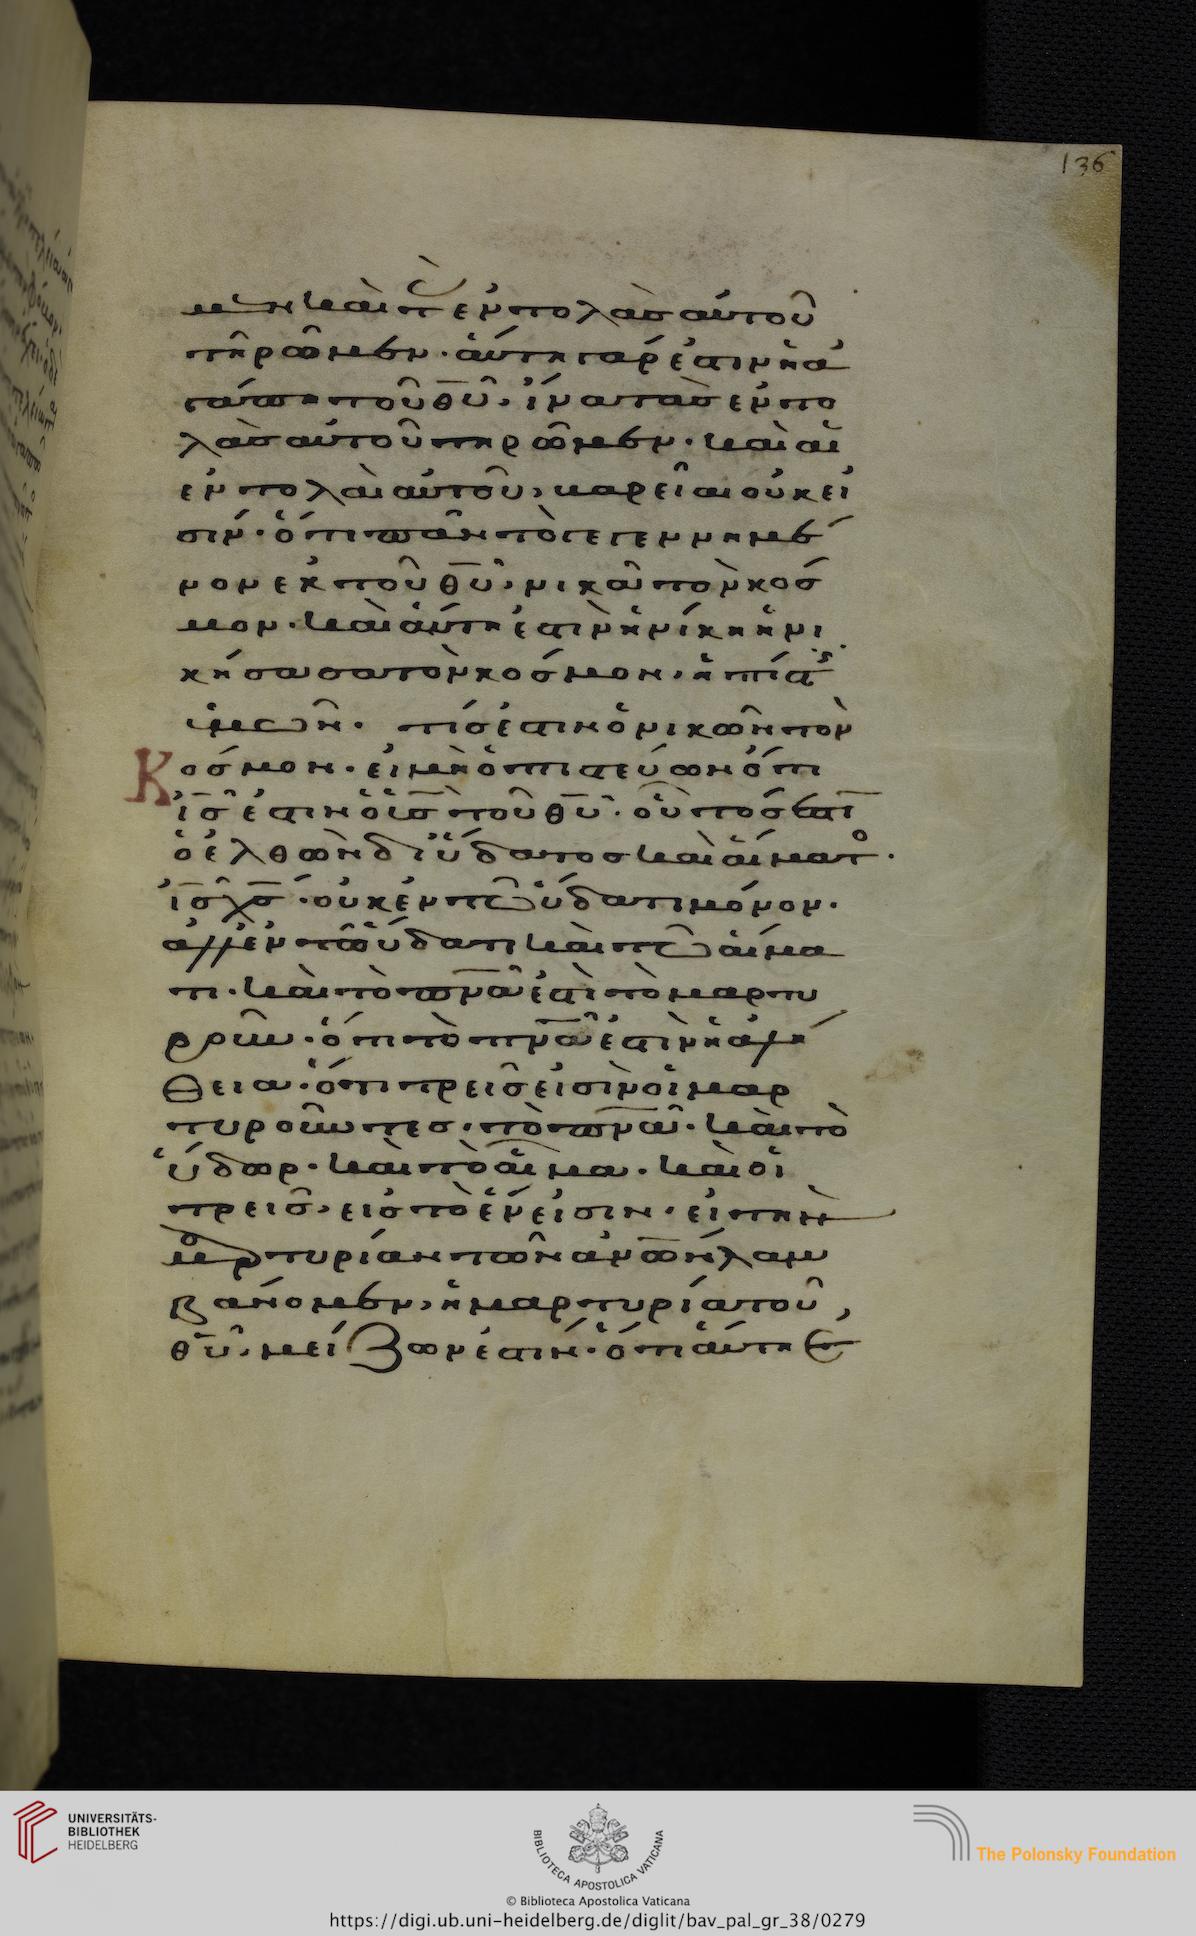 136
μεν καὶ τ(ὰς) ἐντολὰσ αὐτοῦ
τηρῶμεν· αὕτη γάρ ἐστιν ἡ ἀ
γάπη τοῦ θυ̅, ἵνα τὰσ ἐντο
λὰσ αὐτοῦ τηρῶμεν· καὶ αἱ
ἐντολαὶ αὐτοῦ, βαρεῖαι οὐκ εἰ
σίν· ὅτι πᾶν τὸ γεγεννημέ
νον ἐκ τοῦ θυ̅, νικᾶ τὸν κόσ
μον· καὶ αὕτη ἐστὶν ἡ νίκη ἡ νι
κήσασα τὸν κόσμον, ἡ πίστ(ις)
ἡμῶν· τίσ ἐστιν ὁ νικῶν τὸν
Κόσμον· εἰ μὴ ὁ πιστεύων ὅτι
ισ̅ ἐστιν ὁ υἱσ̅ τοῦ θυ̅· οὗτόσ ἐστιν
ὁ ἐλθὼν δι ὕδατοσ καὶ αἵματο·
ισ̅ χσ̅· οὐκ ἐν τῶ ὕδατι μόνον·
ἀλλ ἐν τῶ ὕδατι καὶ τῶ αἵμα
τι· καὶ τὸ πνα̅ ἐστὶ τὸ μαρτυ
ροῦν· ὅτι τὸ πνα̅ ἐστὶν ἡ ἀλή
θεια· ὅτι τρεῖσ εἰσὶν οἱ μαρ
τυροῦντεσ· τὸ πνα̅· καὶ τὸ
ὕδωρ· καὶ τὸ αἷμα· καὶ οἱ
τρεῖσ, εἰσ τὸ ἕν εἰσιν· εἰ τὴν
μαρτυρίαν τῶν ανω̅ν λαμ
βάνομεν, ἡ μαρτυρία τοῦ
θυ̅, μείζων ἐστίν· ὅτι αὕτη ἐστὶν
UNIVERSITÄTS-
BIBLIOTHEK
HEIDELBERG
BIBLIOTECA APOSTOLICA VATICANA
© Biblioteca Apostolica Vaticana
The Polonsky Foundation
https://digi.ub.uni-heidelberg.de/diglit/bav_pal_gr_38/0279